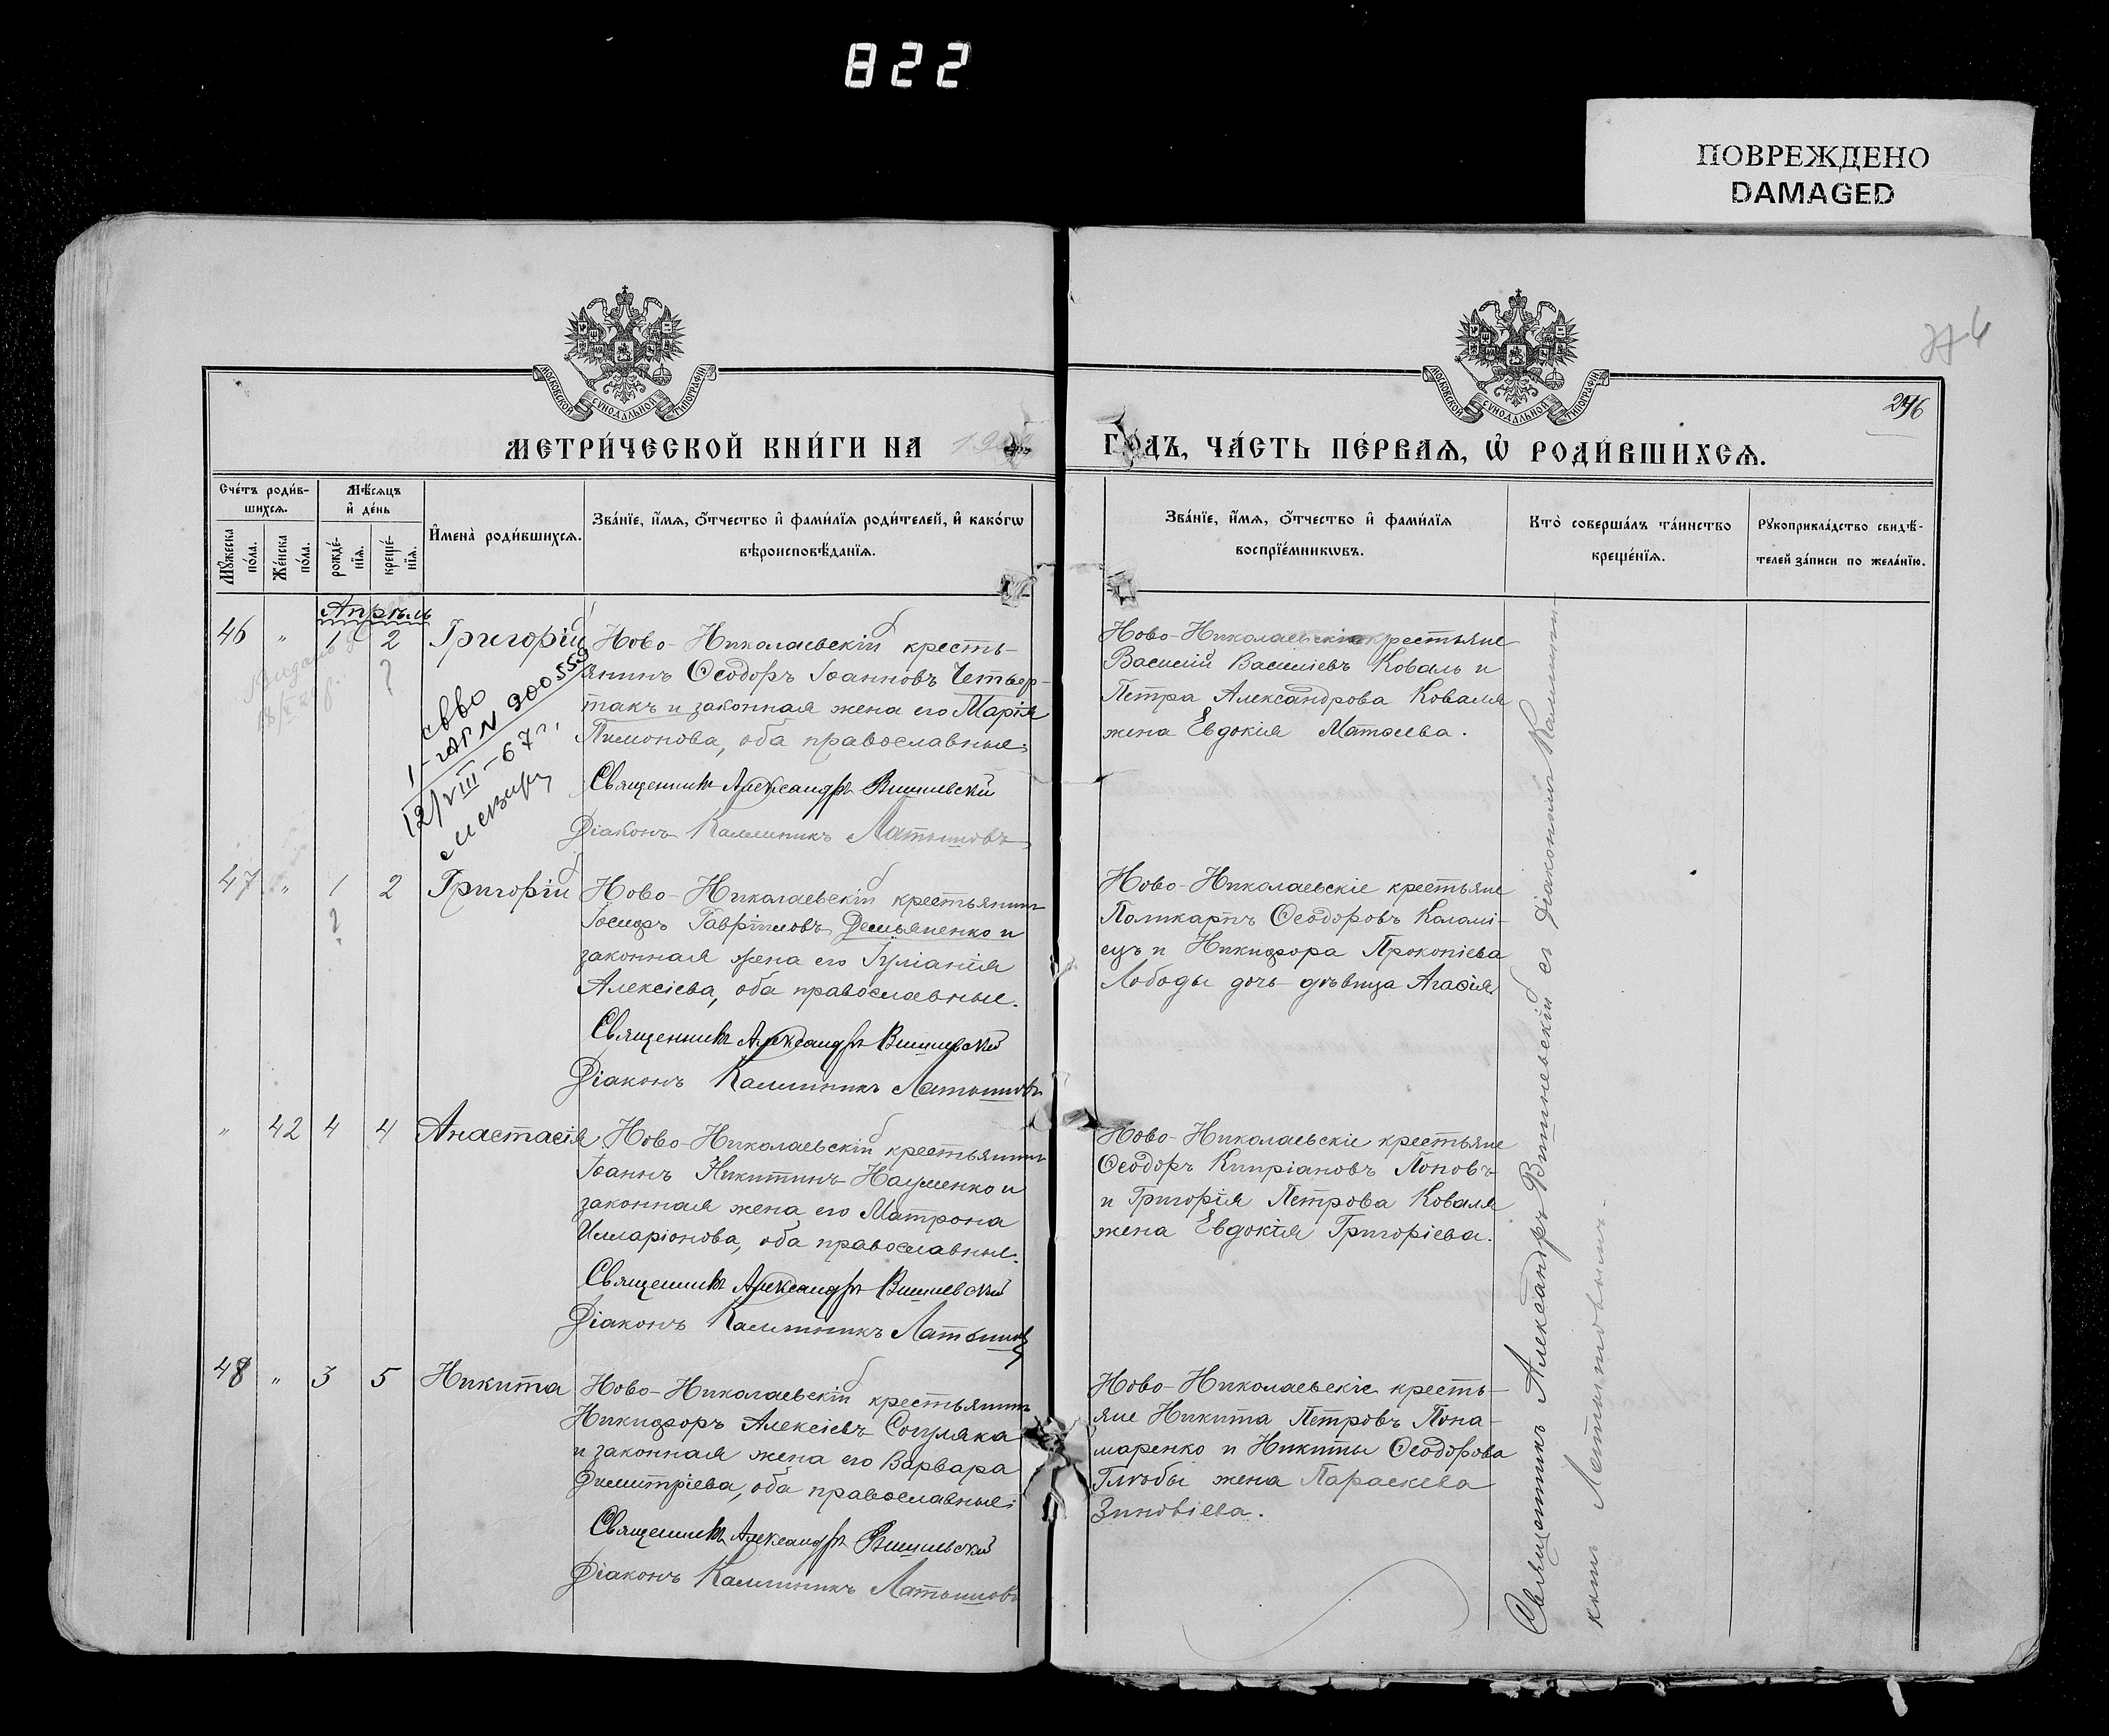 822
ПОВРЕЖДЕНО
DAMAGED
МОСКОВСКОЙ СѴНОДАЛЬНОЙ ТИПОГРАФІИ
МОСКОВСКОЙ СѴНОДАЛЬНОЙ ТИПОГРАФІИ
246
МЕТРИ́ЧЕСКОЙ КНИ́ГИ НА
ГОДЪ, ЧА́СТЬ ПЕ́РВАѦ, Ѽ РОДИ́ВШИХСѦ.
Сче́тъ роди́в-
шихсѧ.
Мꙋ́жеска
по́ла.
Же́нска
по́ла.
Мѣ́сѧцъ
и҆ де́нь
рожде́-
нїѧ.
креще́-
нїѧ.
И҆мена̀ роди́вшихсѧ.
Зва́нїе, и҆́мѧ, ѻ҆́тчество и҆ фами́лїѧ роди́телей, и҆ како́гѡ
вѣроисповѣ́данїѧ.
Зва́нїе, и҆́мѧ, ѻ҆́тчество и҆ фами́лїѧ
воспрїе́мникѡвъ.
Кто̀ соверша́лъ та́инство
креще́нїѧ.
Рꙋкоприкла́дство свидѣ́-
телей за́писи по жела́нїю.
Апрѣль
46 " 1 2 Григорій
Ново-Николаевскій кресть-
янинъ Ѳеодоръ Іоанновъ Четвер-
такъ и законная жена его Марія
Пимонова, оба православные.
Священникъ Александръ Вишневскій
Діаконъ Каллиникъ Латышовъ
Ново-Николаевскіе крестьяне
Василій Василіевъ Коваль и
Петра Александрова Коваля
жена Евдокія Матѳеева.
свво
1-АП N 200559
12/VIII-67 г.
47 " 1 2 Григорій
Ново-Николаевскій крестьянинъ
Іосифъ Гавріиловъ Демьяненко и
законная жена его Іуліанія
Алексіева, оба православные.
Священникъ Александръ Вишневскій
Діаконъ Каллиникъ Латышовъ
Ново-Николаевскіе крестьяне
Поликарпъ Ѳеодоровъ Коломі-
ецъ и Никифора Прокопіева
Лободы дочь-дѣвица Агаѳія.
" 42 4 4 Анастасія
Ново-Николаевскій крестьянинъ
Іоаннъ Никитинъ Науменко и
законная жена его Матрона
Илларіонова, оба православные.
Священникъ Александръ Вишневскій
Діаконъ Каллиникъ Латышовъ
Ново-Николаевскіе крестьяне
Ѳеодоръ Кипріановъ Поповъ
и Григорія Петрова Коваля
жена Евдокія Григоріева.
48 " 3 5 Никита
Ново-Николаевскій крестьянинъ
Никифоръ Алексіевъ Сопуляка
и законная жена его Варвара
Димитріева, оба православные.
Священникъ Александръ Вишневскій
Діаконъ Каллиникъ Латышовъ
Ново-Николаевскіе кресть-
яне Никита Петровъ Пона-
маренко и Никиты Ѳеодорова
Глюбы жена Параскева
Зиновіева.
Священникъ Александръ Вишневскій съ діакономъ Каллини-
комъ Латышовымъ.